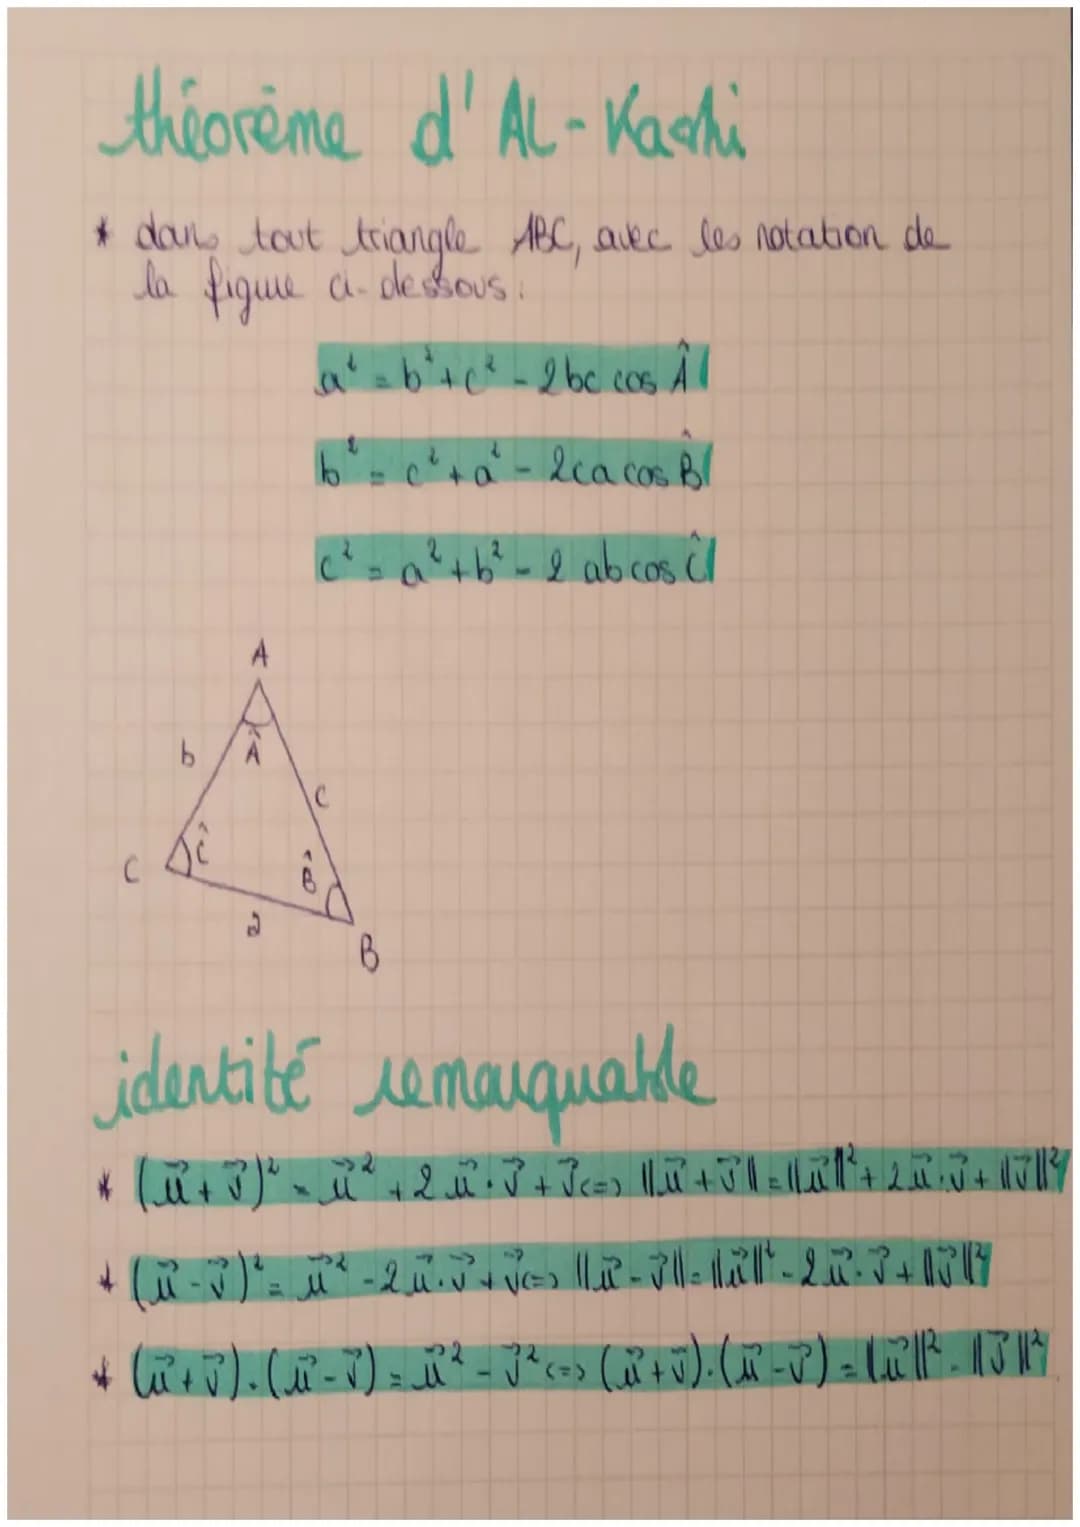 théorème d'AL-Kashi
* dans tout triangle ABC, avec les notation de
la figure ci-dessous :
a² = b² + c² - 2bc cos Â
b² = c² + a² - 2ca cos B̂
c² = a² + b² - 2 ab cos Ĉ
A
b
Â
c
Ĉ
C
B̂
a
B
identité remarquable
* (u⃗ + v⃗)² = u⃗² + 2 u⃗ · v⃗ + v⃗ <=> ||u⃗ + v⃗|| = ||u⃗||² + 2 u⃗ · v⃗ + ||v⃗||²
* (u⃗ - v⃗)² = u⃗² - 2 u⃗ · v⃗ + v⃗ <=> ||u⃗ - v⃗|| = ||u⃗||² - 2 u⃗ · v⃗ + ||v⃗||²
* (u⃗ + v⃗) · (u⃗ - v⃗) = u⃗² - v⃗² <=> (u⃗ + v⃗) · (u⃗ - v⃗) = ||u⃗||² - ||v⃗||²